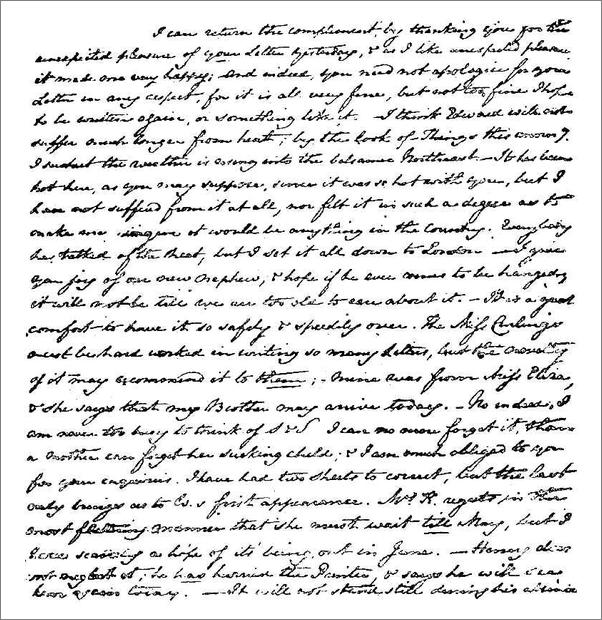 I can return the compliment by thanking you for the
unexpected pleasure of your Letter yesterday, & as I like unexpected pleasure,
it made me very happy; And indeed, you need not apologise for your
Letter in any respect, for it is all very fine, but not too fine I hope
to be written again, or something like it. I think Edward will not
suffer much longer from heat; by the look of Things this morng
I suspect the weather is rising into the balsamic Northeast. - It has been
hot here, as you may suppose, since it was so hot with you, but I
have not suffered from it at all, nor felt it in such a degree as to
make me imagine it would be anything in the Country. Everybody
has talked of the heat, but I set it all down to London. - I give
you joy of our new nephew, & hope if he ever comes to be hanged,
it will not be till we are too old to care about it. - It is a great
comfort to have it so safely & speedily over. The Miss Curlings
must be hard worked in writing so many Letters, but the novelty
of it may recommend it to them; - mine was from Miss Eliza,
& she says that my Brother may arrive today. - No indeed, I
am never too busy to think of S & S. I can no more forget it, than
a mother can forget her sucking child; & I am much obliged to you
for your enquiries. I have had two sheets to correct, but the last
only brings us to W.s first appearance. Mrs K. regrets in the
most flattering manner that she must wait till May, but I
have scarcely a hope of its being out in June. - Henry does
not neglect it; he has hurried the Printer, & says he will see
him again today. - It will not stand still during his absence